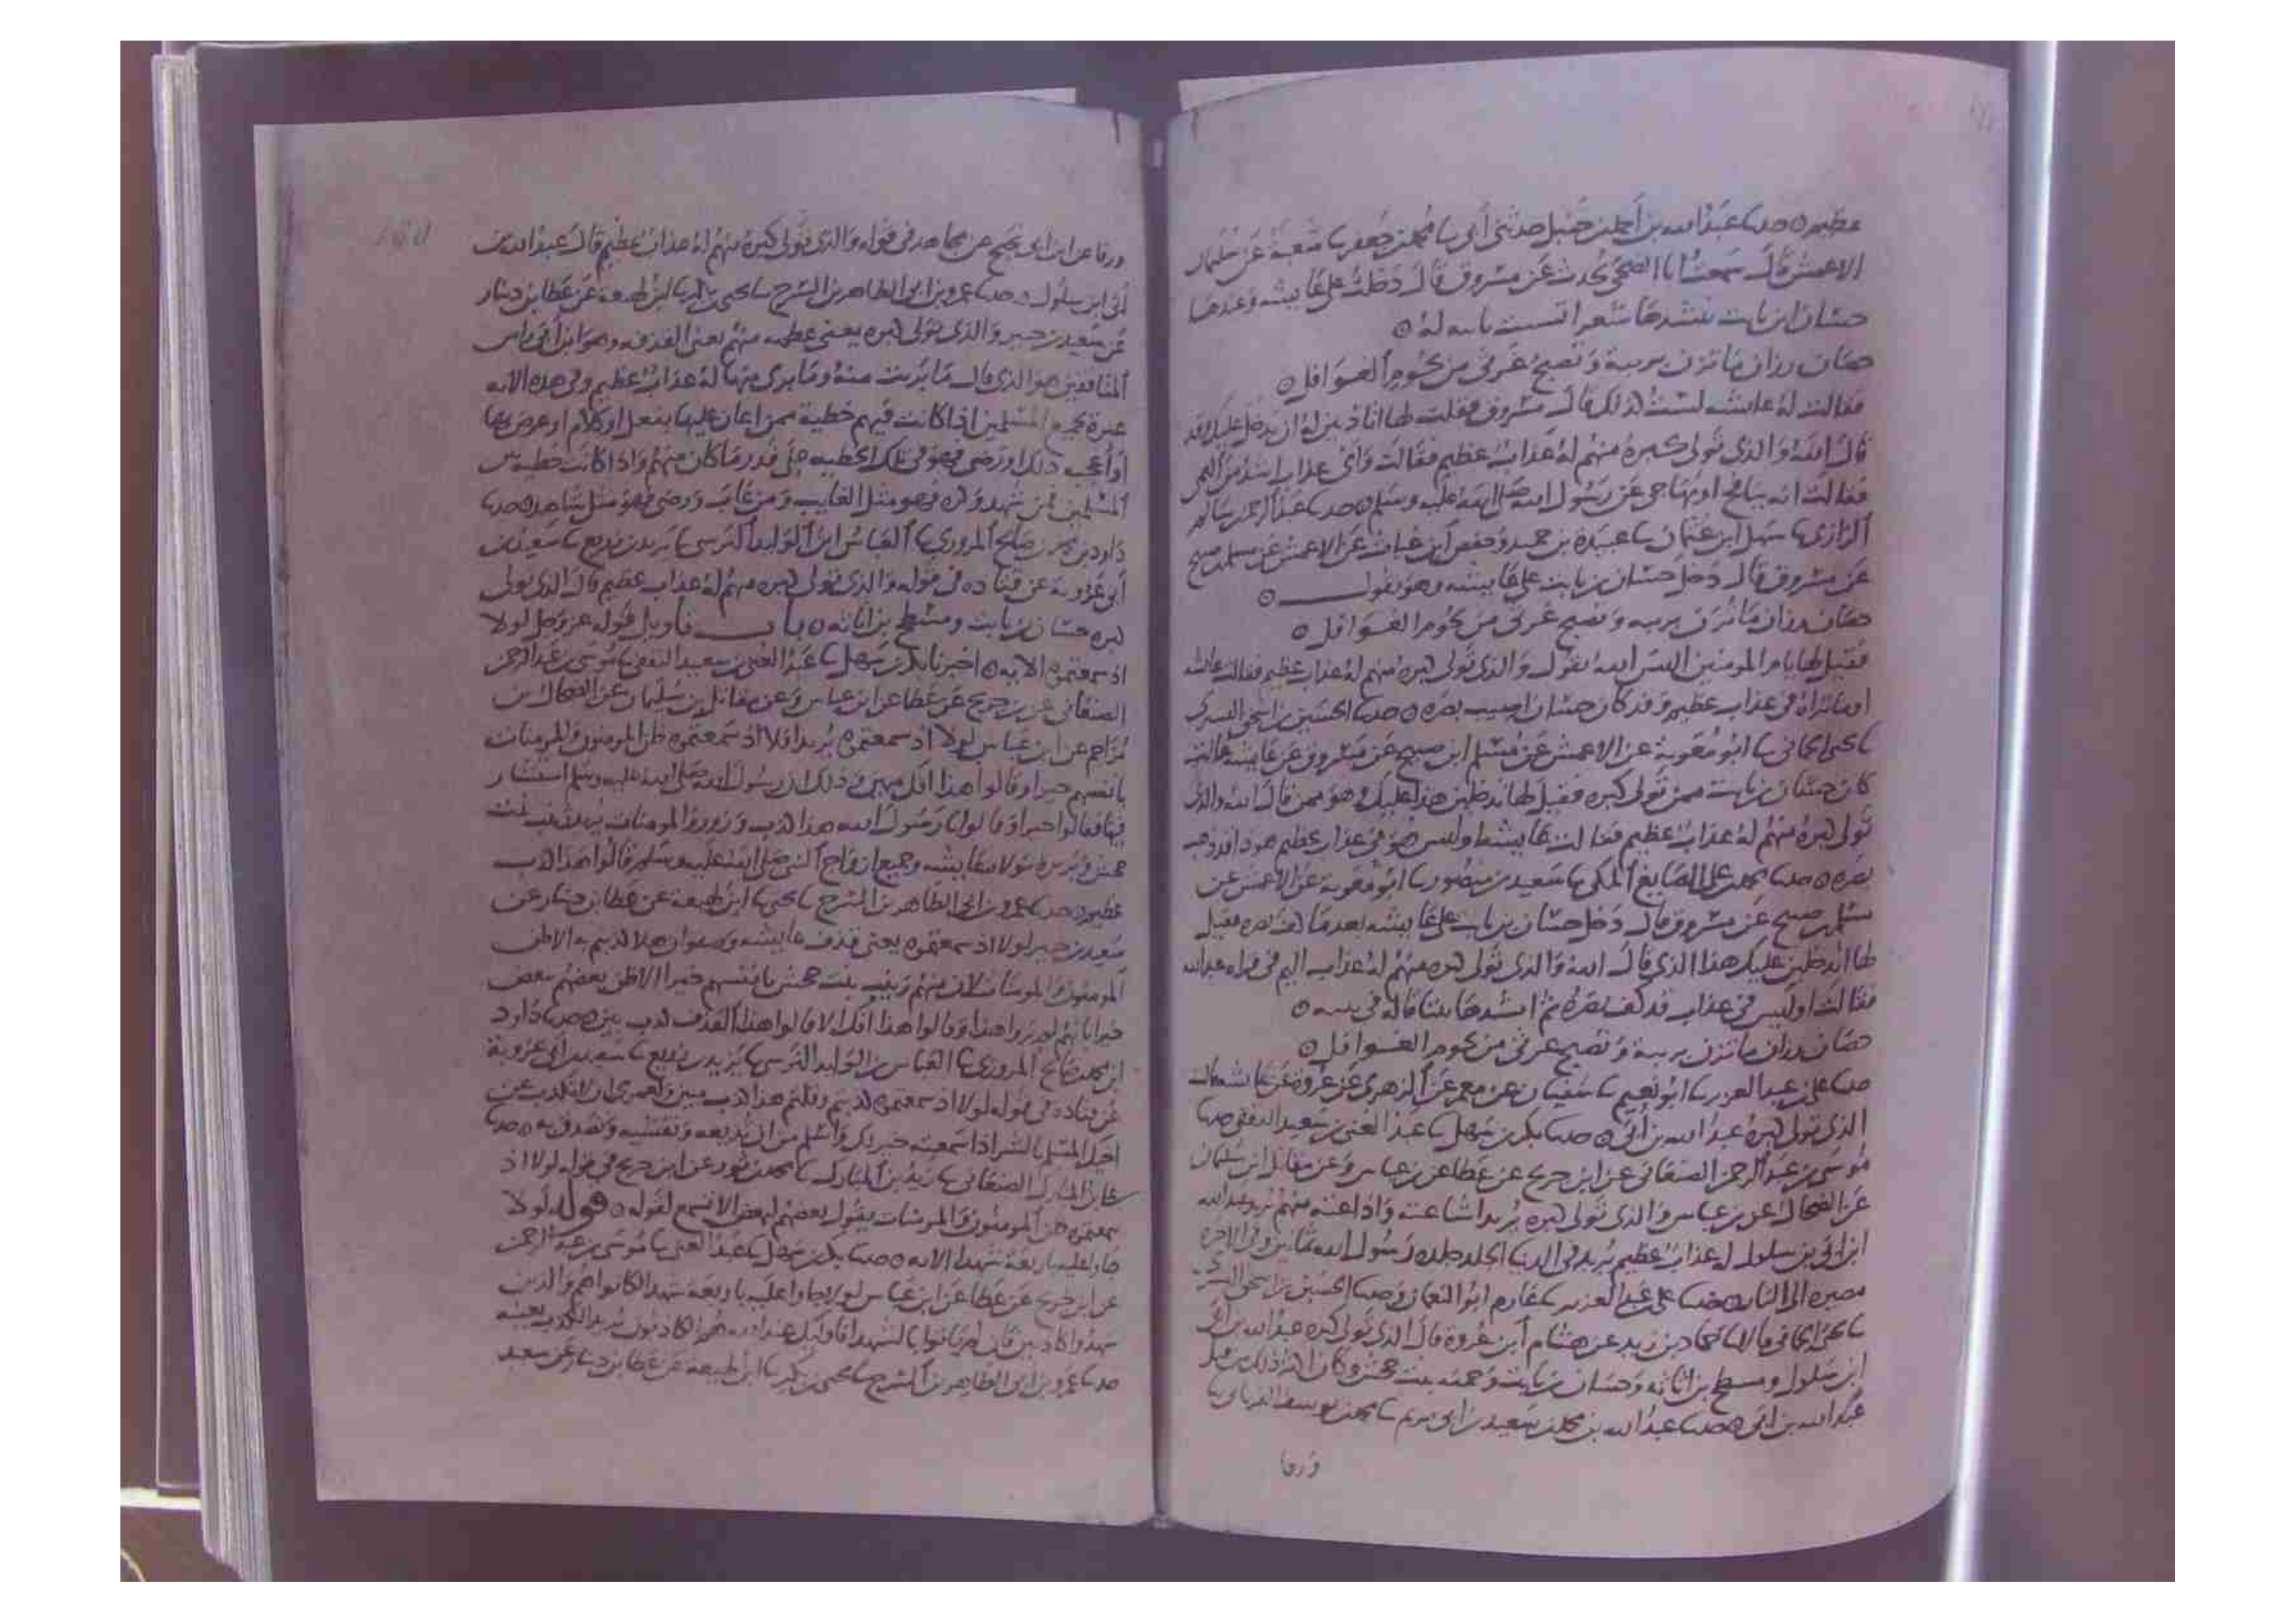 عظيم ه حدثنا عبد الله بن أحمد بن حنبل حدثني أبي ثنا محمد بن جعفر ثنا شعبة عن سليمان
الاعمش قال سمعت أبا الضحى يحدث عن مسروق قال دخلت على عايشه وعندها
حسان ابن ثابت ينشدها شعرا تشبب بابيات له ه
حصان رزان ما تزن بريبة وتصبح غرثى من لحوم الغوافل ه
فقالت له عايشه لست كذلك قال مسروق فقلت لها اتاذنين له ان يدخل عليك وقد
قال الله والذي تولى كبره منهم له عذاب عظيم فقالت وأي عذاب اشد من العمى
فقالت انه كان ينافح او يهاجي عن رسول الله صلى الله عليه وسلم ه حدثنا عبد الرحمن بن سالم
الرازي ثنا سهل ابن عثمان ثنا عبيدة بن حميد وحفص ابن غياث عن الاعمش عن مسلم بن صبيح
عن مسروق قال دخل حسان بن ثابت على عايشه وهو يقول ه
حصان رزان ما تزن بريبه وتصبح غرثى من لحوم الغوافل ه
فقيل لها يا ام المومنين اليس الله يقول والذي تولى كبره منهم له عذاب عظيم فقالت عائشه
اوما تراه في عذاب عظيم وقد كان حسان اصيب بصره ه حدثنا الحسين بن اسحق التستري
ثنا يحيى الحماني ثنا ابو معوية عن الاعمش عن مسلم ابن صبيح عن مسروق عن عايشه قالت
كان حسان بن ثابت ممن تولى كبره فقيل لها تدخلين هذا عليك وهو ممن قال الله والذي
تولى كبره منهم له عذاب عظيم فقالت عايشه وليس هو في عذاب عظيم هوذا قد ذهب
بصره ه حدثنا محمد بن علي الصايغ المكي ثنا سعيد بن منصور ثنا ابو معوية عن الاعمش عن
مسلم بن صبيح عن مسروق قال دخل حسان بن ثابت على عايشه بعدما كف بصره فقيل
لها اتدخلين عليك هذا الذي قال الله والذي تولى كبره منهم له عذاب اليم في قراه عبد الله
فقالت اوليس في عذاب قد كف بصره ثم انشدها بيتا قاله في بيته ه
حصان رزان ما تزن بريبة وتصبح غرثى من لحوم الغوافل ه
حدثنا علي بن عبد العزيز ثنا ابو نعيم ثنا سفيان عن معمر عن الزهري عن عروة عن عايشه قالت
الذي تولى كبره عبد الله بن أبي ه حدثنا بكر بن سهل ثنا عبد الغني بن سعيد الثقفي حدثنا
موسى بن عبد الرحمن الصنعاني عن ابن جريج عن عطا عن بن عباس وعن مقاتل ابن سليمان
عن الضحاك عن بن عباس والذي تولى كبره يريد اشاعته واذاعته منهم يريد عبد الله
ابن ابي بن سلول له عذاب عظيم يريد في الدنيا الجلد جلده رسول الله ثمانين وفي الاخرة
مصيره الى النار ه حدثنا علي بن عبد العزيز ثنا عارم ابو النعمان وحدثنا الحسين بن اسحق التستري
ثنا يحيى الحماني قالا ثنا حماد بن زيد عن هشام ابن عروة قال الذي تولى كبره عبد الله بن أبي
ابن سلول ومسطح بن اثاثه وحسان بن ثابت وحمنه بنت جحش وكان كبر ذلك من قبل
عبد الله بن ابي ه حدثنا عبد الله بن محمد بن سعيد بن ابي مريم ثنا محمد بن يوسف الفريابي ثنا
ورقا
ورقا عن ابن ابي نجيح عن مجاهد في قوله والذي تولى كبره منهم له عذاب عظيم قال عبد الله بن
أبي ابن سلول ه حدثنا عمرو بن ابي الطاهر بن السرح ثنا يحيى بن بكير ثنا ابن لهيعة عن عطا بن دينار
عن سعيد بن جبير والذي تولى كبره يعني عظمه منهم يعني القذفه وهو ابن أبي راس
المنافقين هو الذي قال ما برئت منه وما برئ منها له عذاب عظيم وفي هذه الايه
عبرة لجميع المسلمين اذا كانت فيهم خطية فمن اعان عليها بفعل او كلام او عرض بها
أو أعجبه ذلك او رضي فهو في تلك الخطيه على قدر ما كان منهم واذا كانت خطيه بين
المسلمين فمن شهد وكره فهو مثل الغايب ومن غاب ورضي فهو مثل شاهد ه حدثنا
داود بن محمد بن صالح المروزي ثنا العباس ابن الوليد النرسي ثنا يزيد بن زريع ثنا سعيد بن
أبي عروبة عن قتاده في قوله والذي تولى كبره منهم له عذاب عظيم قال الذي تولى
كبره حسان بن ثابت ومسطح بن اثاثه ه باب تاويل قوله عز وجل لولا
اذ سمعتموه الايه ه اخبرنا بكر بن سهل ثنا عبد الغني بن سعيد الثقفي ثنا موسى بن عبد الرحمن
الصنعاني عن بن جريج عن عطا عن ابن عباس وعن مقاتل بن سليمان عن الضحاك بن
مزاحم عن ابن عباس لولا اذ سمعتموه يريد افلا اذ سمعتموه ظن المومنون والمومنات
بانفسهم خيرا وقالوا هذا افك مبين وذلك ان رسول الله صلى الله عليه وسلم استشار
فيها فقالوا خيرا وقالوا يا رسول الله هذا كذب وزور والمومنات يريد زينب بنت
جحش وبريره مولاة عايشه وجميع ازواج النبي صلى الله عليه وسلم قالوا هذا كذب
عظيم ه حدثنا عمرو بن ابي الطاهر بن السرح ثنا يحيى ثنا ابن لهيعة عن عطا بن دينار عن
سعيد بن جبير لولا اذ سمعتموه يعني قذف عايشه وصفوان هلا كذبتم به الا ظن
المومنون والمومنات لان منهم زينب بنت جحش بانفسهم خيرا الا ظن بعضهم ببعض
خيرا بانهم لم يزنوا هذا وقالوا هذا افك الا قالوا هذا القذف كذب بين ه حدثنا داود
ابن محمد بن صالح المروزي ثنا العباس بن الوليد النرسي ثنا يزيد بن زريع ثنا سعيد بن ابي عروبة
عن قتاده في قوله لولا اذ سمعتموه كذبتم وقلتم هذا كذب مبين ولعمري ان الكذب عن
اخيك المسلم بالشر اذا سمعته خير لك واسلم من ان تذيعه وتفشيه وتصدق به ه حدثنا
علي بن المبارك الصنعاني ثنا زيد بن المبارك ثنا محمد بن ثور عن ابن جريج في قوله لولا اذ
سمعتموه ظن المومنون والمومنات يقول بعضهم لبعض الا تسمع لقوله ه قوله لولا
جاوا عليه باربعة شهدا الايه ه حدثنا بكر بن سهل ثنا عبد الغني ثنا موسى بن عبد الرحمن
عن ابن جريج عن عطا عن ابن عباس لولا جاوا عليه باربعة شهدا لكانوا هم والذين
شهدوا كاذبين فاذ لم ياتوا بالشهدا فاوليك عند الله هم الكاذبون يريد الكذب بعينه
حدثنا عمرو بن ابي الطاهر بن السرح ثنا يحيى بن بكير ثنا ابن لهيعة عن عطا بن دينار عن سعيد